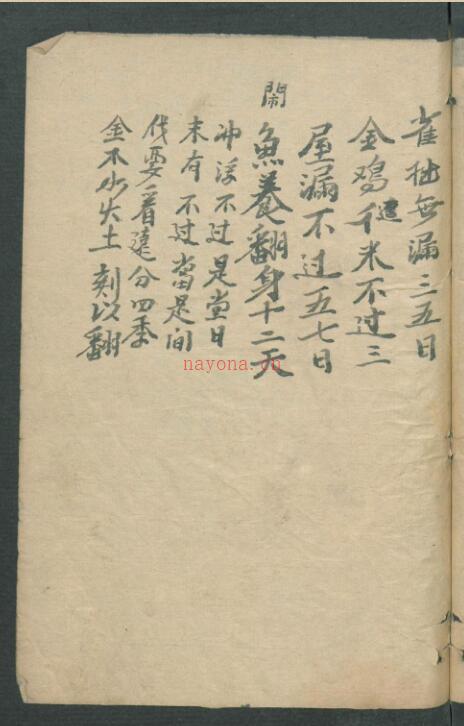 雀扡無漏三五日
金鸡千連米不过三
屋漏不过五七日
閙
魚養翻身十二天
冲浮不过是当日
末有不过當是间
伐要看遠分四季
金木水火土刻以翻
nayona.cn